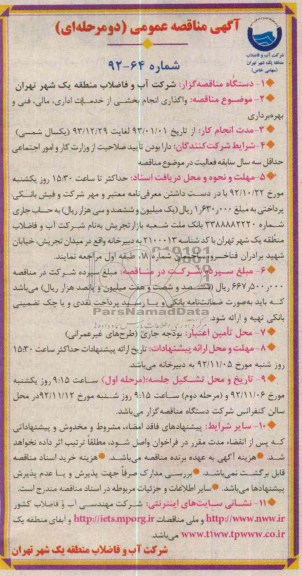 آگهی مناقصه عمومی (دومرحله‌ای)
شرکت آب و فاضلاب
منطقه یک شهر تهران
(سهامی خاص)
شماره ۶۴-۹۲
۱- دستگاه مناقصه‌گزار: شرکت آب و فاضلاب منطقه یک شهر تهران
۲- موضوع مناقصه: واگذاری انجام بخشی از خدمات اداری، مالی، فنی و
بهره‌برداری
۳- مدت انجام کار: از تاریخ ۹۳/۰۱/۰۱ لغایت ۹۳/۱۲/۲۹ (یکسال شمسی)
۴- شرایط شرکت‌کنندگان: دارا بودن تأیید صلاحیت از وزارت کار و امور اجتماعی
حداقل سه سال سابقه فعالیت در موضوع مناقصه
۵- مهلت و نحوه و محل دریافت اسناد: حداکثر تا ساعت ۱۵:۳۰ روز یکشنبه
مورخ ۹۲/۱۰/۲۲ با در دست داشتن معرفی‌نامه معتبر و مهر شرکت و فیش بانکی
پرداختی به مبلغ ۱/۶۳۰/۰۰۰ ریال (یک میلیون و ششصد و سی هزار ریال) به حساب جاری
شماره ۲۳۸۸۸۲۲۲۰ بانک ملت شعبه بازار تجریش به‌نام شرکت آب و فاضلاب
منطقه یک شهر تهران با کد شناسه ۲۱۰۰۰۱۳ به دبیرخانه واقع در میدان تجریش، خیابان
شهید برادران فناخسرو شماره ۱۸، طبقه اول مراجعه نمایند
۶- مبلغ سپرده شرکت در مناقصه: مبلغ سپرده شرکت در مناقصه
۶۶۷/۵۰۰/۰۰۰ ریال (ششصد و شصت و هفت میلیون و پانصد هزار ریال) می‌باشد
که باید به‌صورت ضمانت‌نامه بانکی و یا رسید پرداخت نقدی و یا چک تضمینی
بانکی تهیه و ارائه شود.
۷- محل تأمین اعتبار: بودجه جاری (طرح‌های غیرعمرانی)
۸- مهلت و محل ارائه پیشنهادات: تاریخ ارائه پیشنهادات حداکثر تا ساعت ۱۵:۳۰
روز شنبه مورخ ۹۲/۱۱/۰۵ به دبیرخانه می‌باشد.
۹- تاریخ و محل تشکیل جلسه: (مرحله اول) ساعت ۹:۱۵ روز یکشنبه
مورخ ۹۲/۱۱/۰۶ و (مرحله دوم) ساعت ۹:۱۵ روز شنبه مورخ ۹۲/۱۱/۱۲ در محل
سالن کنفرانس شرکت دستگاه مناقصه گزار می‌باشد.
۱۰- سایر شرایط: پیشنهادهای فاقد امضاء، مشروط و مخدوش و پیشنهاداتی
که پس از انقضاء مدت مقرر در فراخوان واصل شود، مطلقاً ترتیب اثر داده نخواهد
شد. هزینه آگهی به عهده برنده مناقصه می‌باشد. هزینه خرید اسناد مناقصه
قابل برگشت نمی‌باشد. بررسی مدارک صرفاً جهت پذیرش و یا عدم پذیرش
پیشنهادها می‌باشد. سایر اطلاعات و جزئیات مربوطه در اسناد مناقصه مندرج است.
۱۱- نشانی سایت‌های اینترنتی: شرکت مهندسی آب و فاضلاب کشور
http://www.nww.ir و ملی مناقصات http://iets.mporg.ir و آبفای منطقه یک
www.t1ww.tpww.co.ir می‌باشد.
شرکت آب و فاضلاب منطقه یک شهر تهران